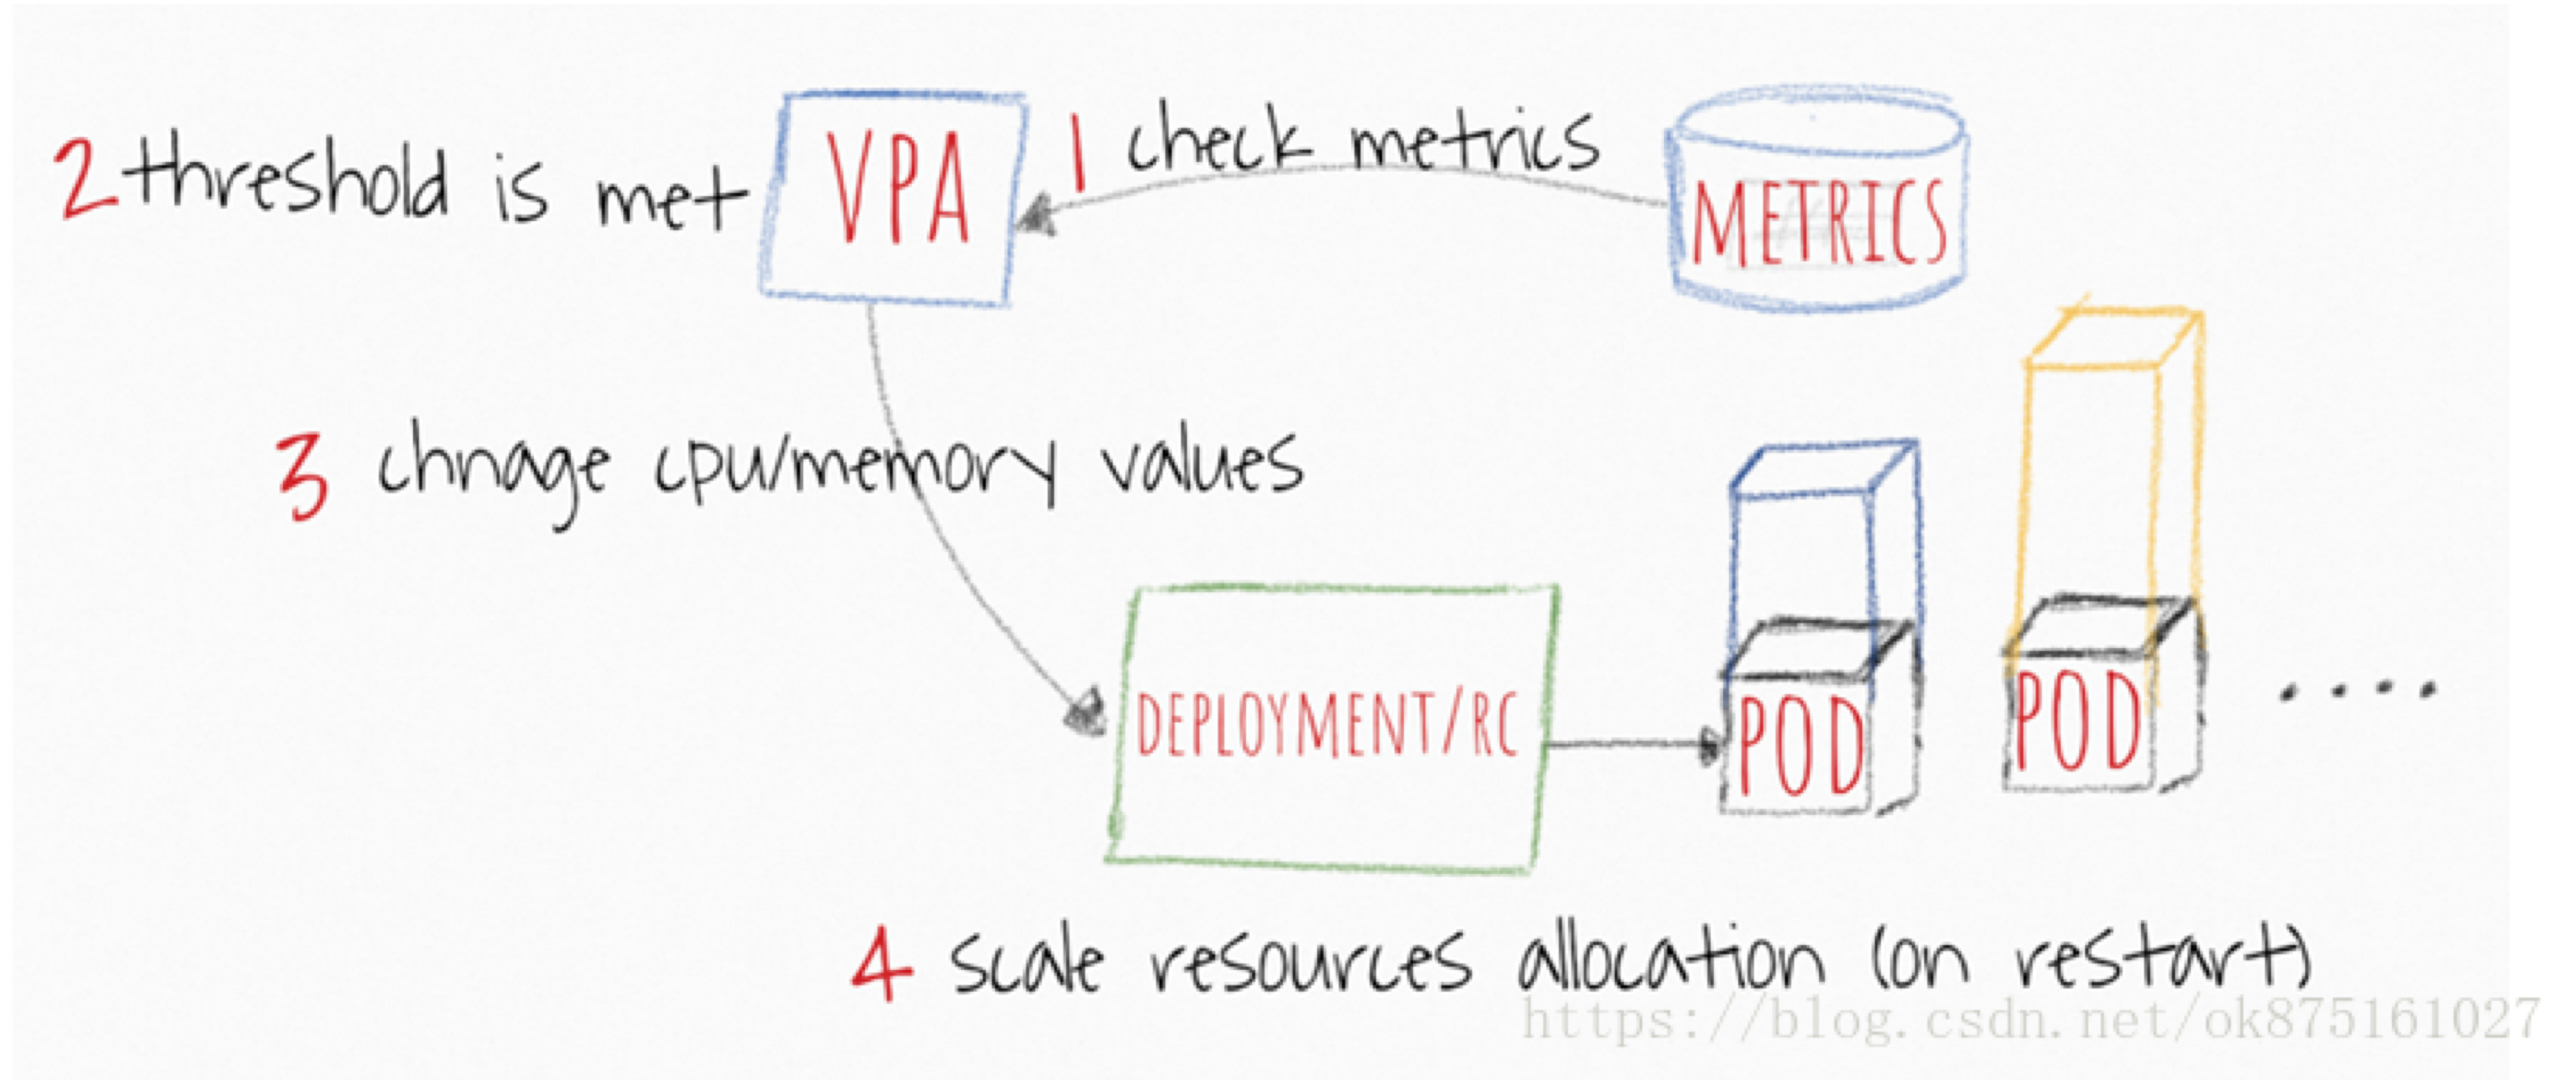 2 threshold is met
VPA
1 check metrics
METRICS
3 chnage cpu/memory values
DEPLOYMENT/RC
POD
POD
....
4 scale resources allocation (on restart)
https://blog.csdn.net/ok875161027